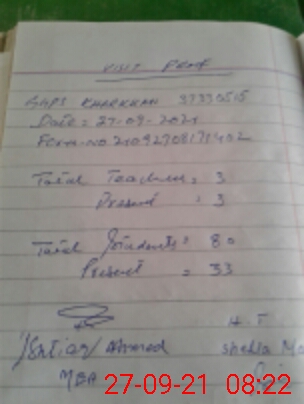 VISIT PROOF
GGPS KHARKHAN 37330515
Date = 27-09-2021
Form no 21092708171402
Total Teachers = 3
Present = 3
Total Students = 80
Present = 33
H.T
Ishtiaq Ahmed Shehla
MEA
27-09-21 08:22